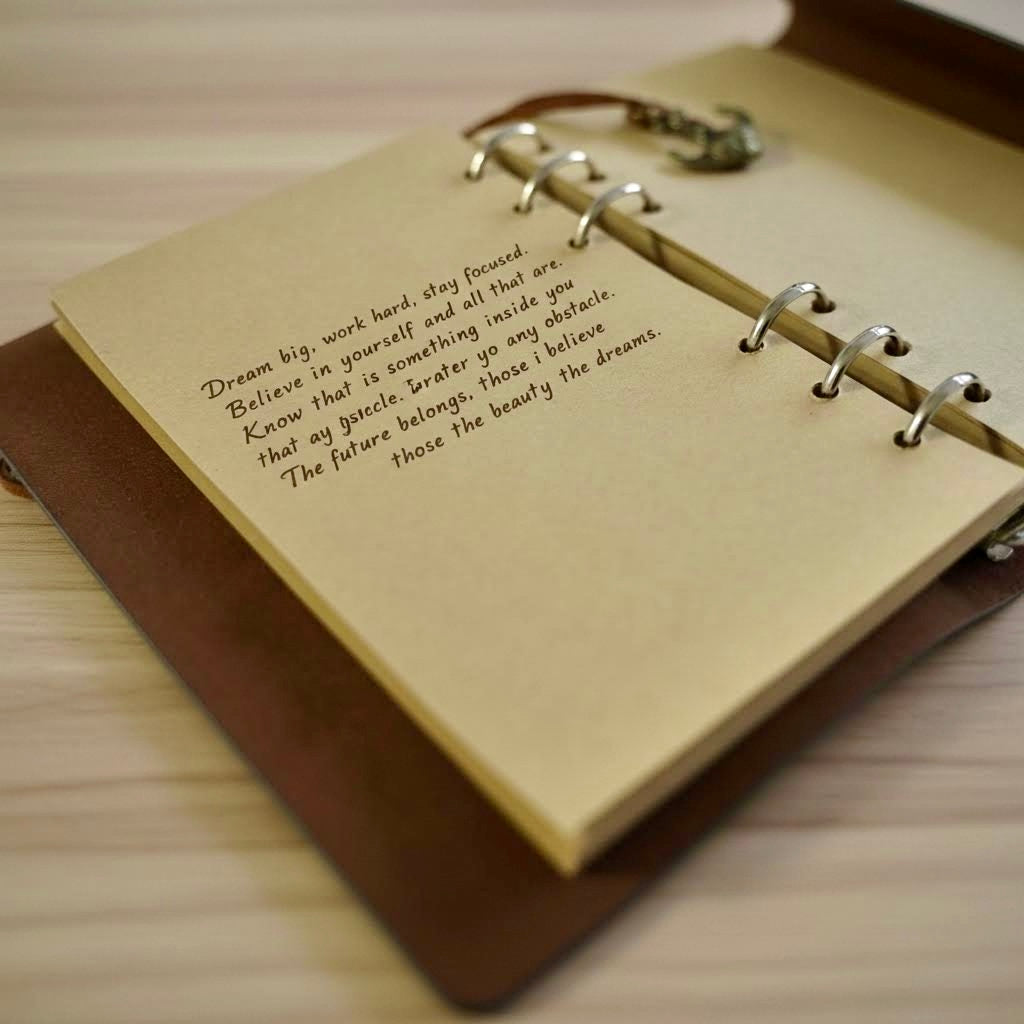 Dream big, work hard, stay focused.
Believe in yourself and all that are.
Know that is something inside you
that ay yo any obstacle.
The future belongs, those i believe
those the beauty the dreams.